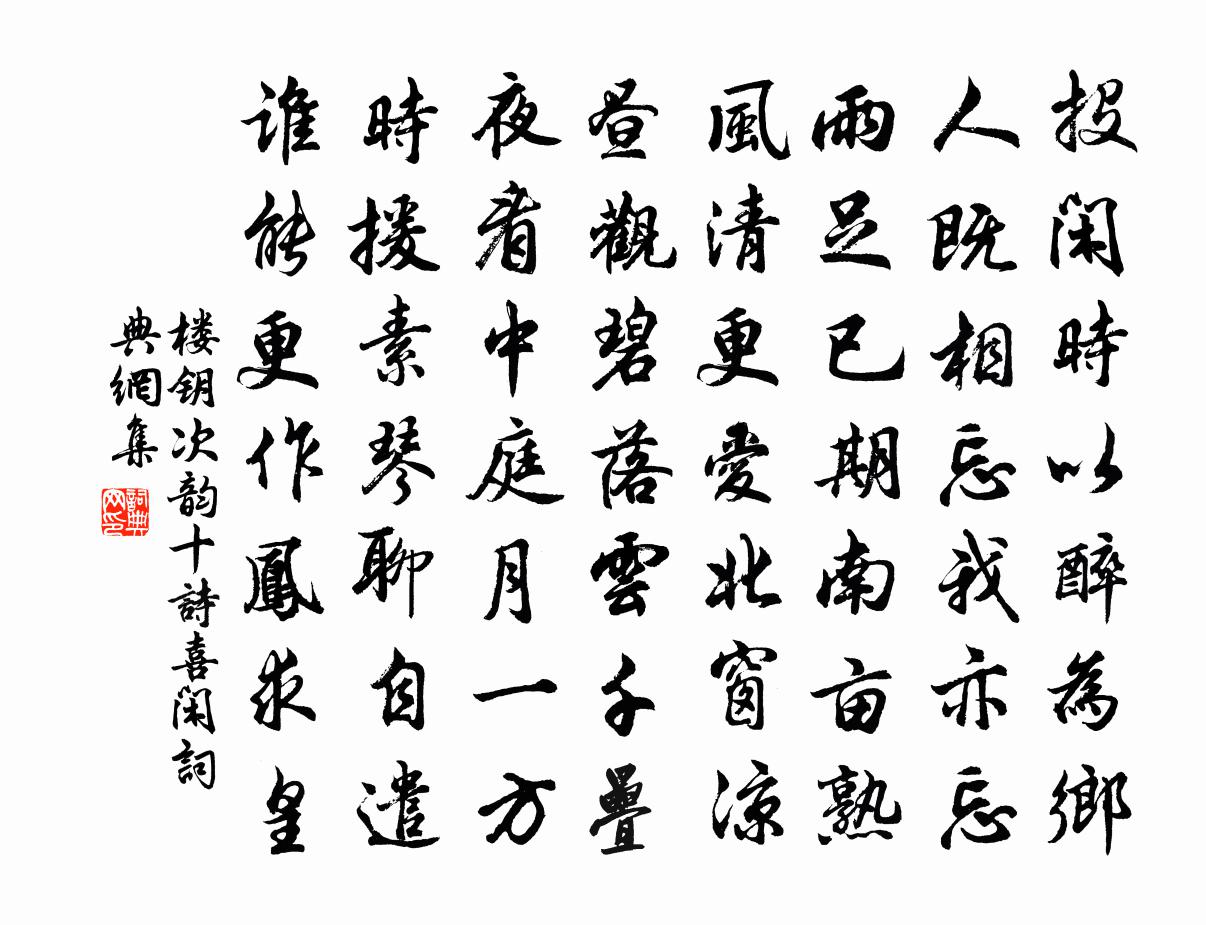 投閑時以醉為鄉
人既相忘我亦忘
雨足已期南亩熟
風清更愛北窗涼
昼觀碧落雲千疊
夜看中庭月一方
時援素琴聊自遣
谁能更作鳳求皇
楼钥次韵十詩喜閑詞
典網集
詞典
网印